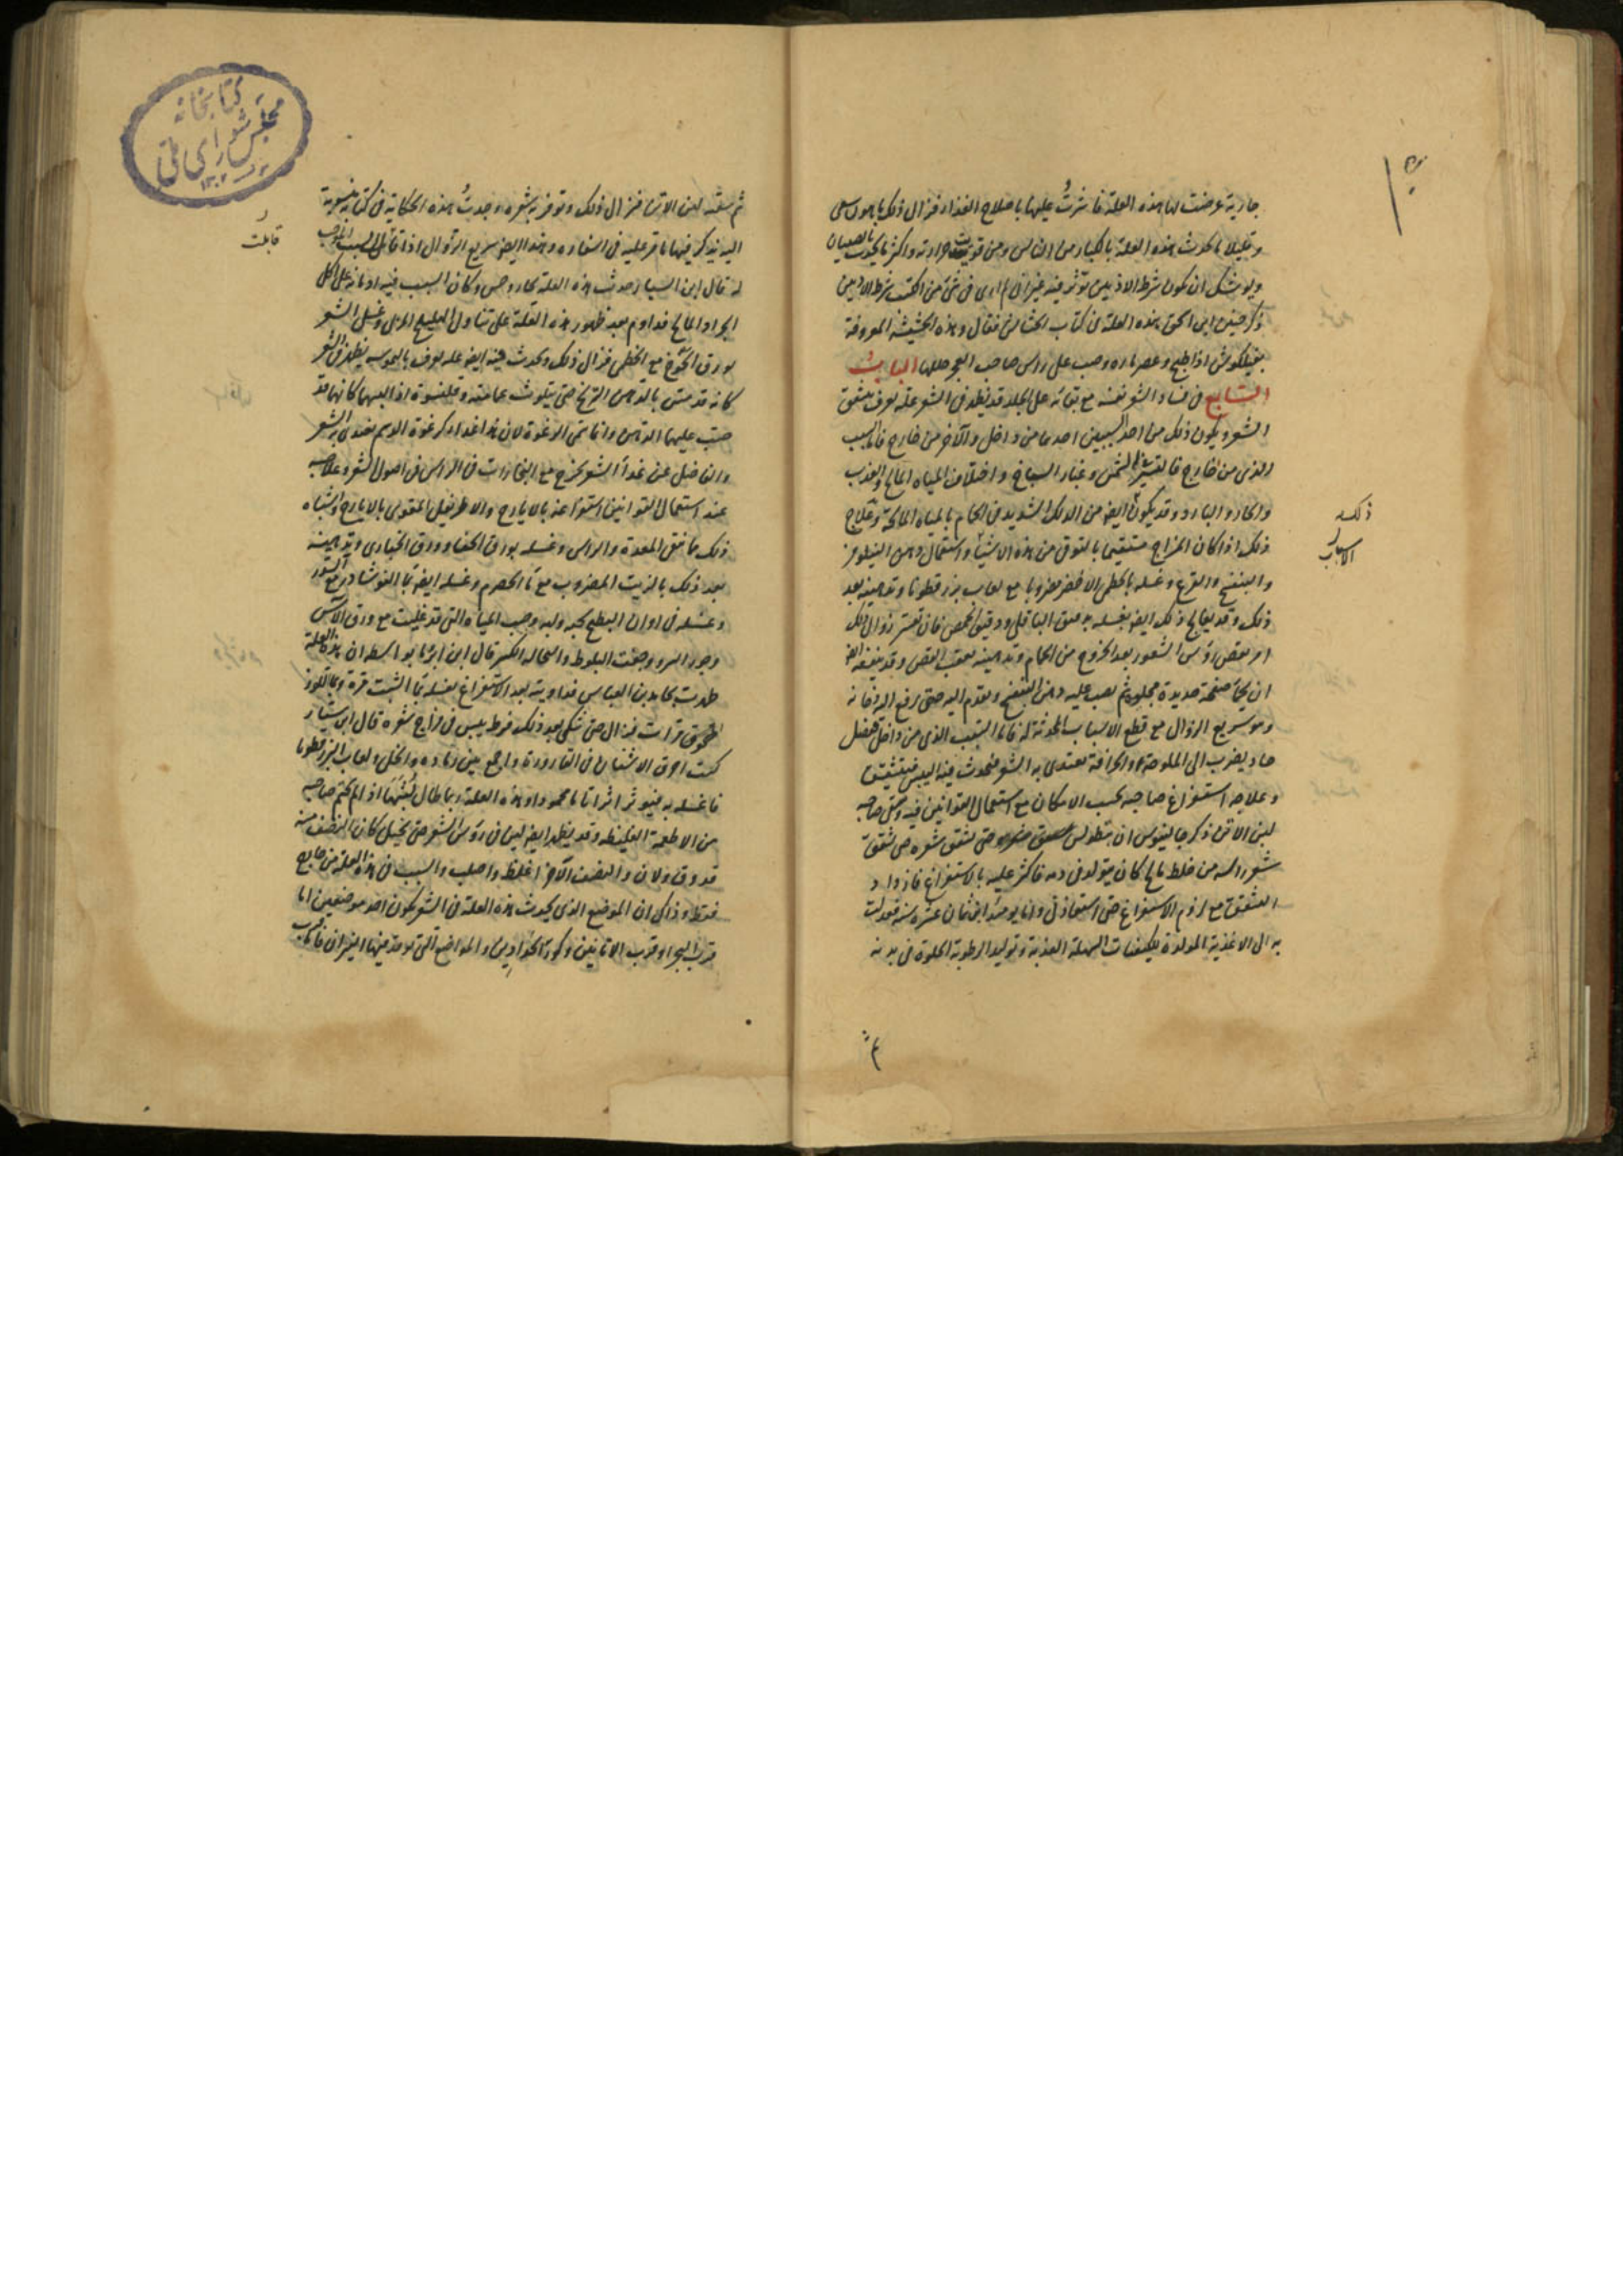 جارية عرضت لها هذه العلة فاشرتُ عليها باصلاح الغذاء فزال ذلك
وقليلا ما يحدث هذه العلة بالكبار من الناس ومن قويت حرارته واكثر ما يحدث بالصبيان
ويوشك ان يكون شرط الاذنين يؤثر فيه غير انى لم ارى فى شئ من الكتب شرط الاذنين
ذكر حنين ابن اسحق هذه العلة فى كتاب الحشائش فقال وهذه الحشيشة المعروفة
اذا طبخ وعصر ماؤه وصب على رؤس صاحب حللها الباب
السابع فى فساد الشعر نفسه مع بقائه على الجلد قد يظهر فى الشعر علة تعرف بتشقق
الشعر ويكون ذلك من احد السببين احدهما من داخل والآخر من خارج فالسبب
الذى من خارج الشمس وغبار السباخ واختلاف المياه المالح والعذب
والحار والبارد وقد يكون ايضا من الدلك الشديد فى الحمام بالمياه المالحة وعلاج
ذلك اذا كان المزاج مستقيما بالتوقى من هذه الاشياء واستعمال دهن النيلوفر
والبنفسج والقرع وغسله بالخطمى الاخضر مضروبا مع لعاب بزرقطونا وتدهينه بعد
ذلك وقد يعالج ذلك ايضا بغسله بدقيق الباقلى ودقيق الحمص فان تعسر زوال ذلك
امر بقص رؤس الشعور بعد الخروج من الحمام وتدهينه بعقب القص وقد ينفعه ايضا
ان يحمى صفحة حديدة مجلوة ثم يصب عليه دهن البنفسج ويقدم اليه حتى يرفع اليه دخانه
وهو سريع الزوال مع قطع الاسباب المحدثة له فاما السبب الذى من داخل ففضل
حاد يضرب الى الملوحة والحرافة يغتدى به الشعر فيحدث فيه اليبس فيتشقق
وعلاجه استفراغ صاحبه بحسب الامكان مع استعمال القوانين فيه وسقى صاحبه
لبن الاتن ذكر جالينوس ان حتى تشقق شعره حتى تشقق
شعر راسه من خلط مالح كان يتولد فى دمه فاكثر عليه بالاستفراغ فازداد
التشقق مع لزوم الاستفراغ حتى استعاذ بى وانا يومئذ ابن ثمان عشرة سنة فعدلت
به الى الاغذية المولدة للكيفيات السهلة العذبة وتوليد الرطوبة الحلوة فى بدنه
ذلك
الاسباب
ثم سقيته لبن الاتن فزال ذلك وتوفر به شعره وجدتُ هذه الحكاية فى كتاب منسوبة
اليه يذكر فيها ما مر عليه فى اسفاره وهذا ايضا سريع الزوال اذا قابل السبب الموجب
له قال ابن السيار حدثت هذه العلة وكان السبب فيه ادمانه على اكل
الجراد المالح فداوم بعد ظهور هذه العلة على تناول الهليلج المربى وغسل الشعر
بورق الخوخ مع الخطمى فزال ذلك ويحدث فيه ايضا علة تعرف يظهر فى الشعر
كانه قد مس بالدهن الزنخ حتى يتلوث عمامته وقلنسوة اذا لبسها كانها قد
صب عليها الدهن وانما سمى الرغوة لان هذا غذاء كرغوة الدسم يغتدى به الشعر
والفاضل عن غذاء الشعر يخرج مع البخارات فى الراس فى اصول الشعر وعلاجه
عند استعمال القوانين استفراغه بالايارج والاطريفل المقوى بالايارج واشباه
ذلك مما نقى المعدة والراس وغسله بورق الحناء وورق الخبازى وتدهينه
بعد ذلك بالزيت المضروب مع ماء الحصرم وغسله ايضا بماء النوشادر مع
وغسله فى اوان البطيخ بحبه ولبه وصب المياه التى قد غليت مع ورق الآس
وجوز السرو وجفت البلوط والنخالة قال ابن ان هذه العلة
ظهرت بحامد بن العباس فداويته بعد الاستفراغ بغسله بماء الشبت مرة
مرات فزال حتى شكى بعد ذلك فرط يبس فى مزاج شعره قال ابن سيار
كنت احرق الاشنان فى القارورة واجمع بين رماده والخل ولعاب البزرقطونا
فاغسله به فيؤثر اثرا تاما محمودا وهذه العلة ربما طال لبثها اذا لم يحتم صاحبه
من الاطعمة الغليظة وقد يظهر ايضا لين فى رؤس الشعر حتى يخيل كان النصف منه
قد دق ولان والنصف الآخر اغلظ واصلب والسبب فى هذه العلة من خارج
فقط وذاك ان الموضع الذى يحدث هذه العلة فى الشعر يكون احد موضعين اما
قرب البحر او قرب الاتانين وكورة الحدادين والمواضع التى توقد فيها النيران
قابلت
كتابخانه
مجلس شوراى ملى